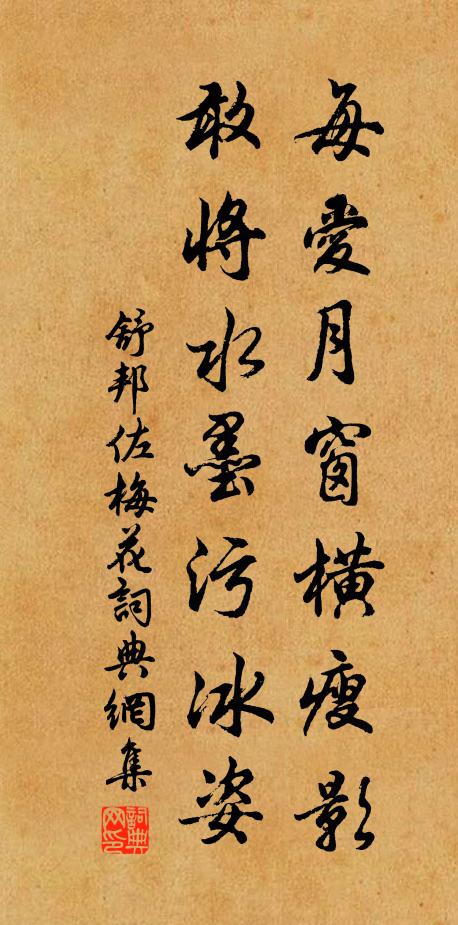 每愛月窗橫瘦影
敢將水墨污冰姿
舒邦佐梅花詞典網集
詞典网印